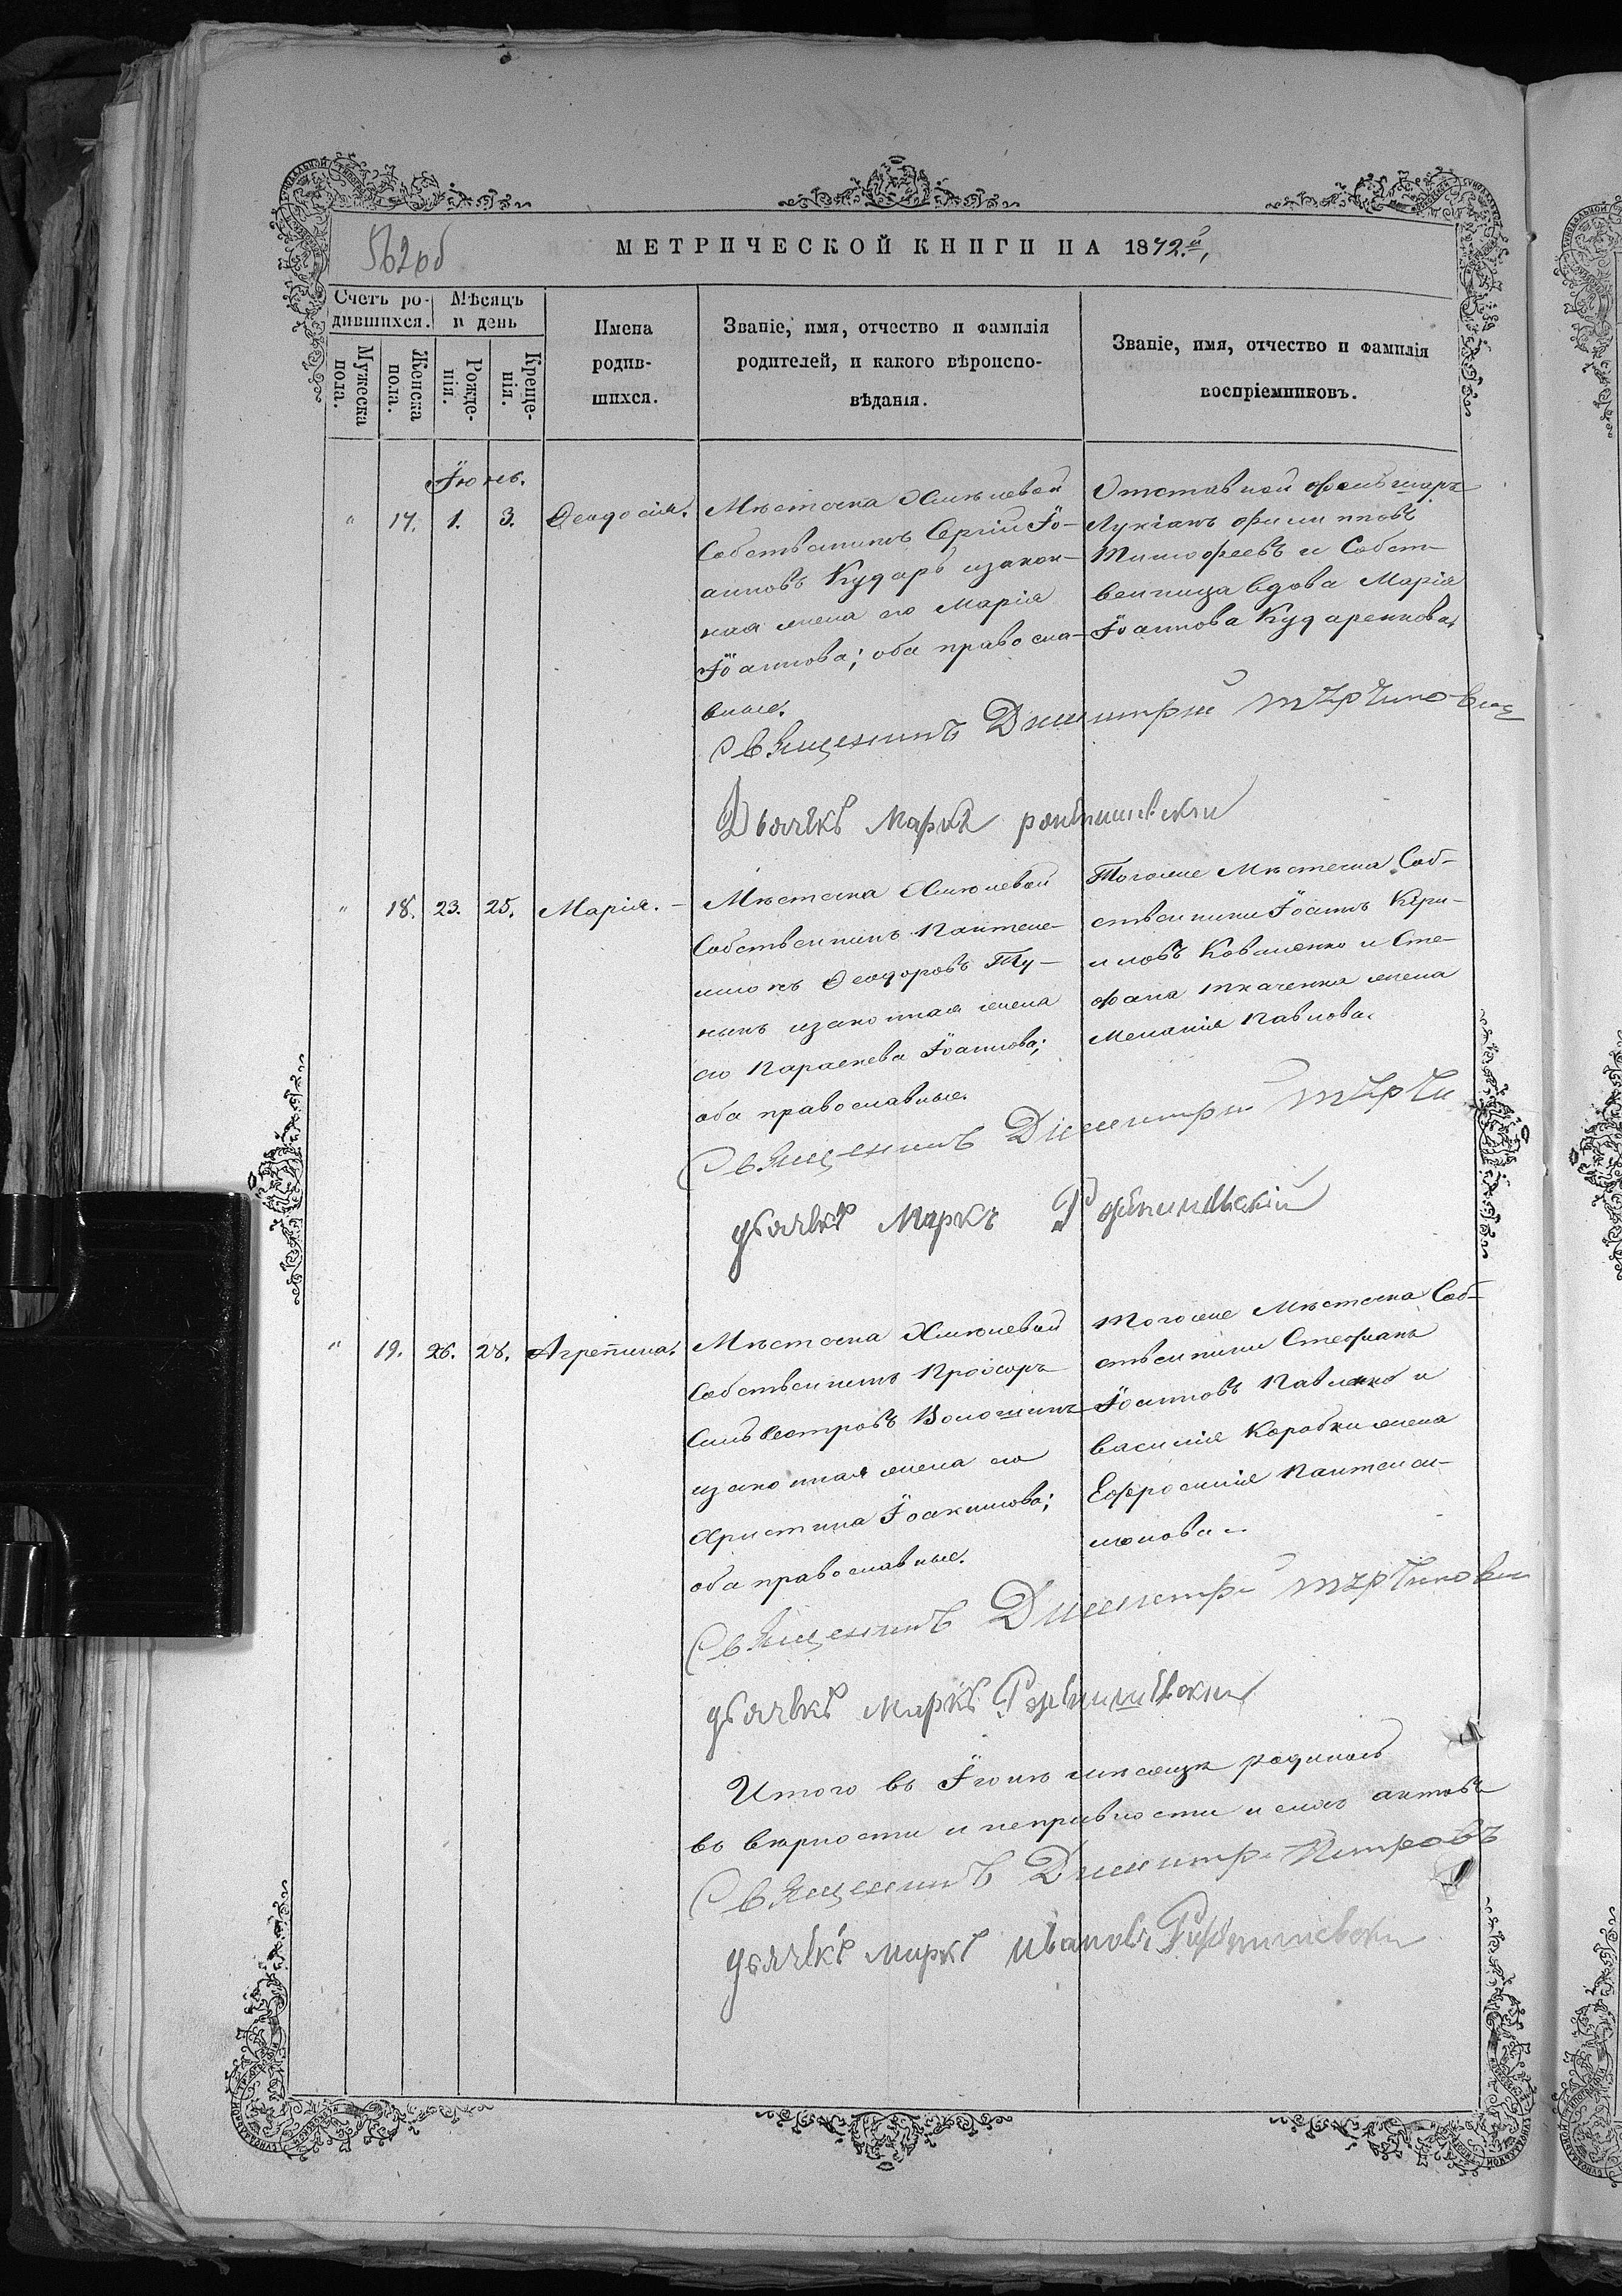 562об
МЕТРИЧЕСКОЙ КНИГИ НА 1872й,
Счетъ ро-
дившихся.
Мѣсяцъ
и день
Мужеска
пола.
Женска
пола.
Рожде-
нія.
Креще-
нія.
Имена
родив-
шихся.
Званіе, имя, отчество и фамилія
родителей, и какого вѣроиспо-
вѣданія.
Званіе, имя, отчество и фамилія
воспріемниковъ.
Іюнь.
" 17. 1. 3. Ѳеодосія.
Мѣстечка Хмѣлевой
Собственникъ Сергій Іо-
анновъ Кударь изакон-
ная жена его Марія
Іоаннова; оба правосла-
вные.
Отставной
Лукіанъ Филипповъ
Тимофеевъ и Собст-
венница вдова Марія
Іоаннова Кударенкова,
Священникъ Димитрій
Дьячекъ Марко
" 18. 23. 25. Марія.
Мѣстечка Хмѣлевой
Собственникъ Пантеле-
имонъ Ѳеодоровъ Ту-
изаконная жена
его Параскева Іоаннова;
оба православные.
Тогоже Мѣстечка Соб-
ственники Іоаннъ Кири-
лловъ Коваленко и Сте-
фана Ткаченка жена
Меланія Павлова.
Священникъ Димитрій
дьячекъ Маркъ
" 19. 26. 28. Агрепина.
Мѣстечка Хмѣлевой
Собственникъ Прохоръ
Сильвестровъ Волошинъ
изаконная жена его
Христина Іоакимова;
оба православные.
Тогоже Мѣстечка Соб-
ственники Стефанъ
Іоанновъ Павленко и
Василія Коробки жена
Ефросинія Пантелеи-
монова.
Священникъ Димитрій
дьячекъ Маркъ
Итого въ Іюнѣ мѣсяцѣ родилось
въ вѣрности и исправности сихъ актовъ
Священникъ Димитрій Петровъ
дьячекъ Маркъ Ивановъ